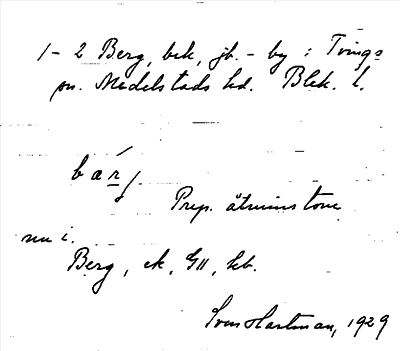 1-2 Berg, bek, jb. - by : Tvings
sn. Medelstads hd. Blek. l.
bær̲j
Prep. åtminstone
nu i.
Berg, ek, G11, kb.
Sven Hartman, 1929